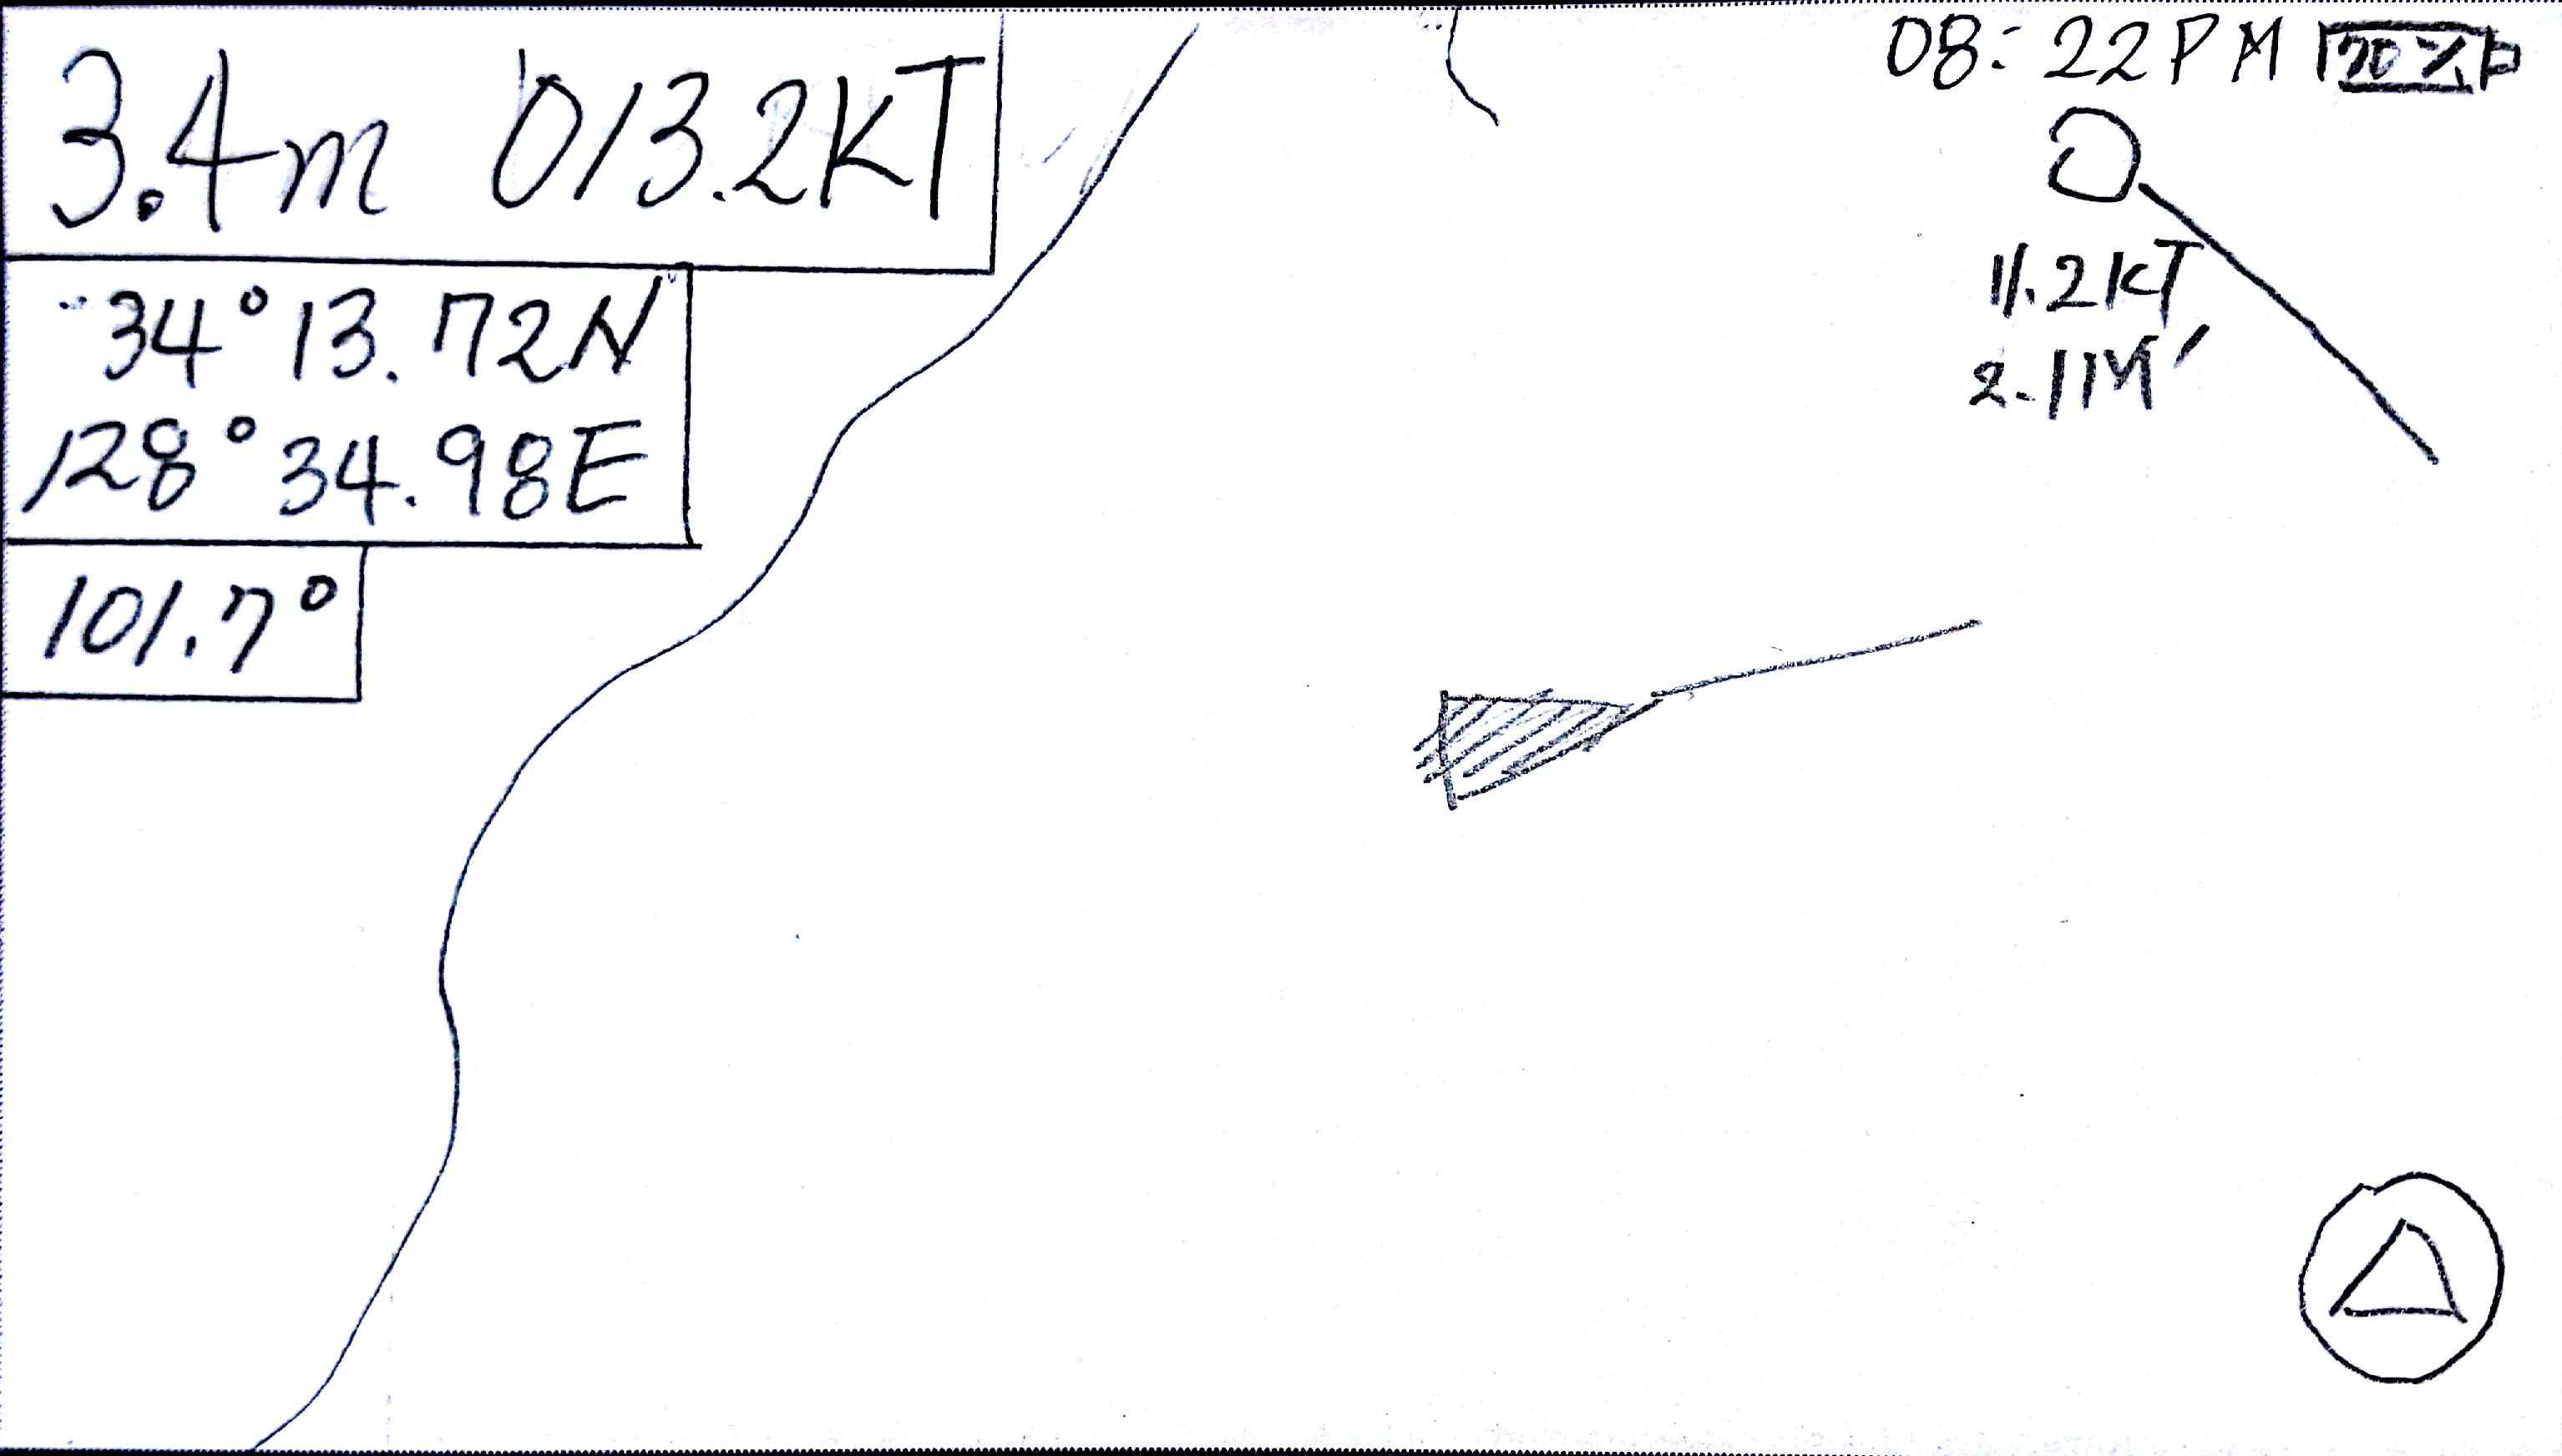 3.4m 013.2KT
34°13.72N
128°34.98E
101.7°
08:22PM 70%
11.2KT
2.11M'